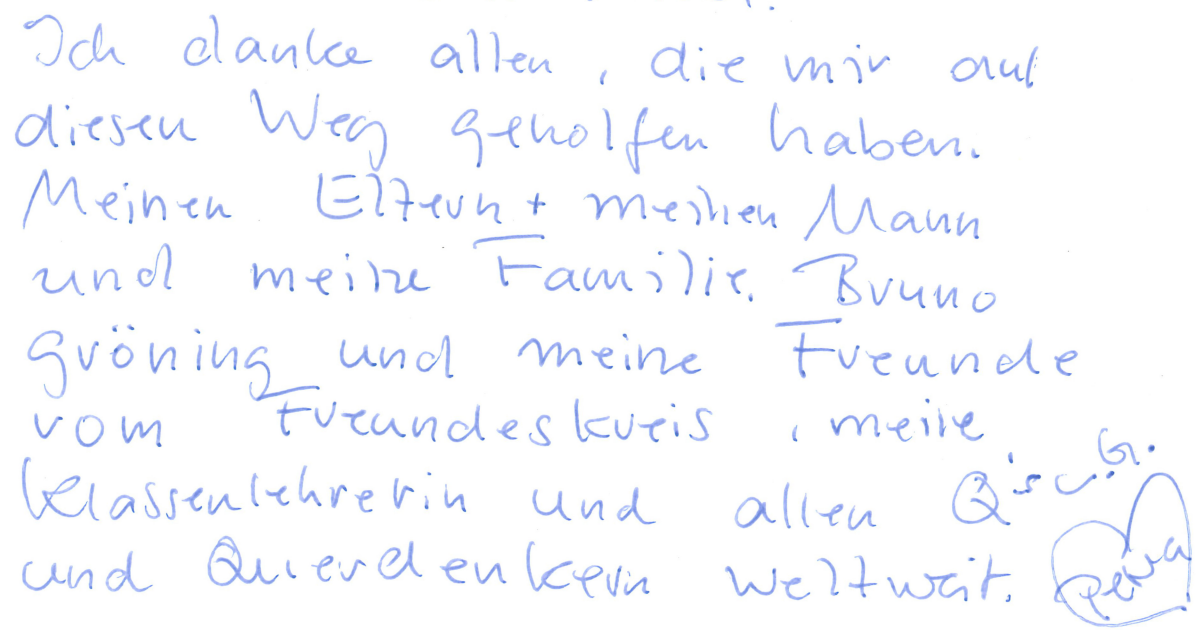 Ich danke allen, die mir auf
diesen Weg geholfen haben.
Meinen Eltern + meinen Mann
und meine Familie. Bruno
Gröning und meine Freunde
vom Freundeskreis, meine
Klassenlehrerin und allen Q's u. G.
und Querdenkern weltweit.